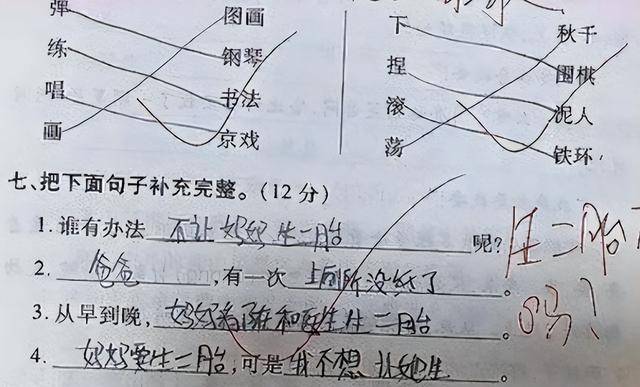 弹 图画 下 秋千
练 钢琴 捏 围棋
唱 书法 滚 泥人
画 京戏 荡 铁环
七、把下面句子补充完整。(12分)
1. 谁有办法 不让妈妈生二胎 呢?
2. 爸爸 ,有一次 上厕所没纸了 。
3. 从早到晚, 妈妈着 和 生 二胎 。
4. 妈妈要生二胎, 可是 我不想让她生 。
生二胎
吗?